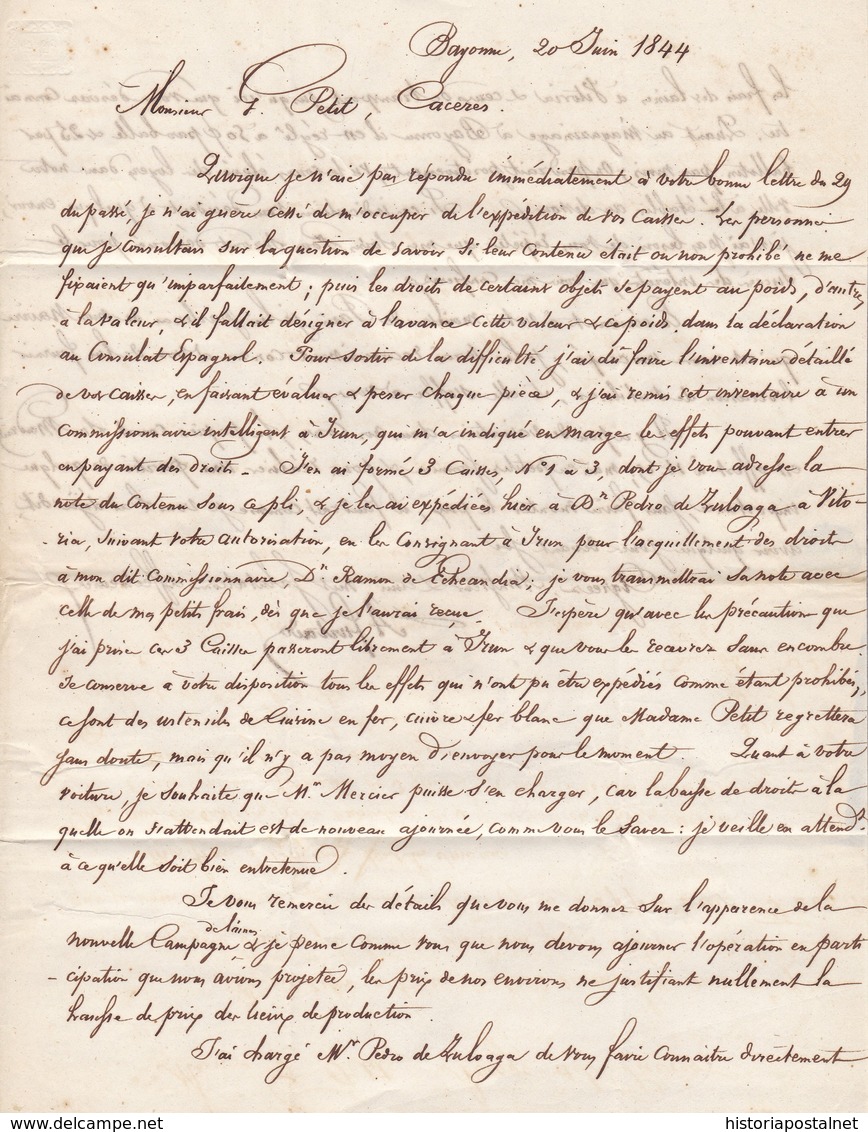 Bayonne, 20 Juin 1844
Monsieur G. Petit, Caceres.
Quoique je n'aie pas répondu immédiatement à votre bonne lettre du 29
du passé, je n'ai guère cessé de m'occuper de l'expédition de vos Caisses. Les personnes
que je consultais sur la question de savoir si leur contenu était ou non prohibé ne me
fixaient qu'imparfaitement; puis les droits de certains objets se payent au poids, d'autres
à la valeur, & il fallait désigner à l'avance cette valeur & ce poids dans la déclaration
au Consulat Espagnol. Pour sortir de la difficulté j'ai dû faire l'inventaire détaillé
de vos caisses, en faisant évaluer & peser chaque pièce, & j'ai remis cet inventaire à un
Commissionnaire intelligent à Irun, qui m'a indiqué en marge les effets pouvant entrer
en payant des droits. J'en ai formé 3 Caisses, N° 1 à 3, dont je vous adresse la
note du Contenu sous ce pli, & je les ai expédiées hier à Dn. Pedro de Zuloaga à Vito-
-ria, suivant votre autorisation, en les Consignant à Irun pour l'acquittement des droits
à mon dit Commissionnaire, Dn. Ramon de Echeandia; je vous transmettrai sa note avec
celle de mes petits frais, dès que je l'aurai reçue. J'espère qu'avec les précautions que
j'ai prises ces 3 Caisses passeront librement à Irun & que vous les recevrez sans encombre.
Je conserve à votre disposition tous les effets qui n'ont pu être expédiés comme étant prohibés,
ce sont des ustensiles de Cuisine en fer, cuivre & fer blanc que Madame Petit regrettera
sans doute, mais qu'il n'y a pas moyen d'envoyer pour le moment. Quant à votre
voiture, je souhaite que Mr. Mercier puisse s'en charger, car la baisse de droits à la
quelle on s'attendait est de nouveau ajournée, comme vous le savez: je veille en attendt.
à ce qu'elle soit bien entretenue.
Je vous remercie des détails que vous me donnez sur l'apparence de la
nouvelle Campagne de laines & je pense comme vous que nous devons ajourner l'opération en parti
-cipation que nous avions projetée, les prix de nos environs ne justifiant nullement la
hausse de prix des lieux de production.
J'ai chargé Mr. Pedro de Zuloaga de vous faire connaitre directement
historiapostalnet